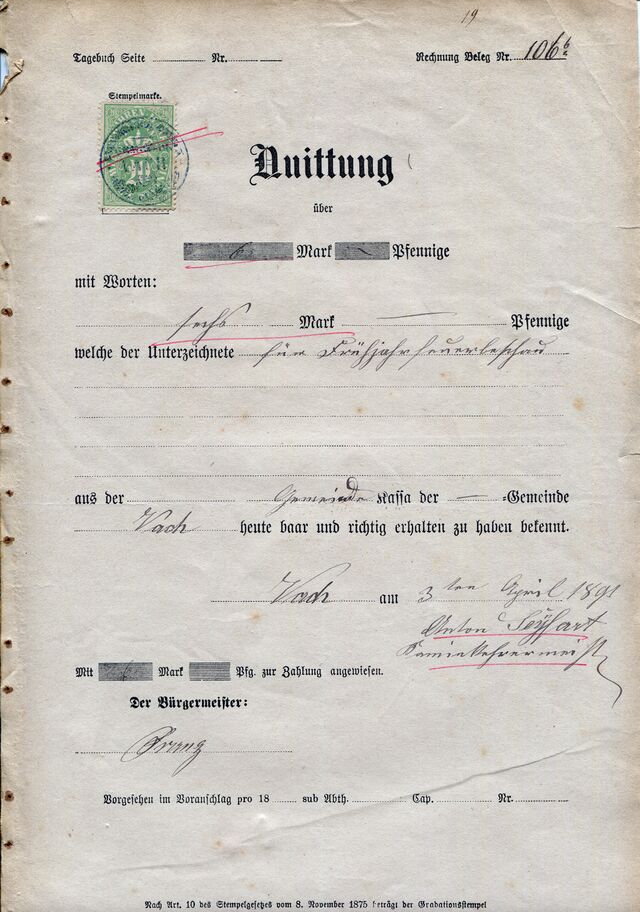 19
Tagebuch Seite Nr. Rechnung Beleg Nr. 106 b
Stempelmarke.
20
Quittung
über
6 Mark — Pfennige
mit Worten:
sechs Mark — Pfennige
welche der Unterzeichnete für Frühjahrfeuerbeschau
aus der Gemeinde Kassa der — =Gemeinde
Vach heute baar und richtig erhalten zu haben bekennt.
Vach am 3ten April 1891
Anton Seyfart
Kaminkehrermeist
Mit 6 Mark Pfg. zur Zahlung angewiesen.
Der Bürgermeister:
Vorgesehen im Voranschlag pro 18 sub Abth. Cap. Nr.
Nach Art. 10 des Stempelgesetzes vom 8. November 1875 beträgt der Gradationsstempel